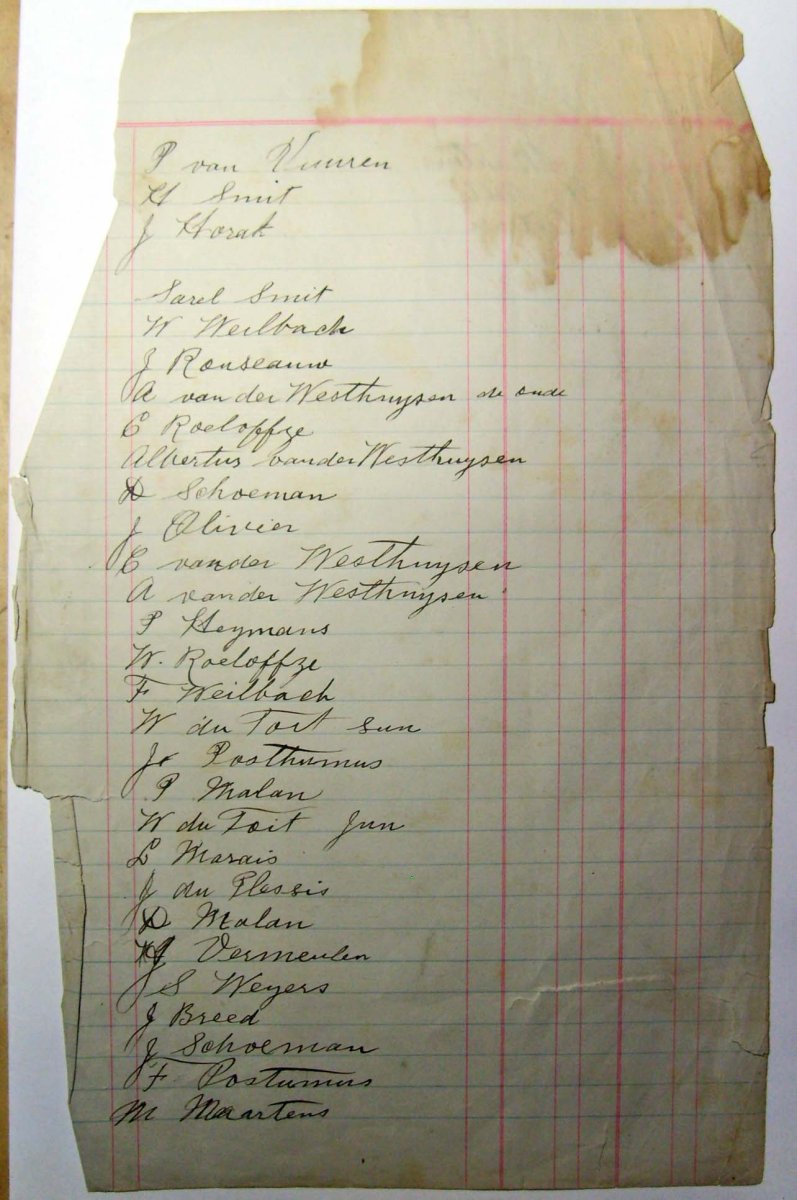 P van Vuuren
H Smit
J Horak
Sarel Smit
W Weilbach
J Ronseauw
A van der Westhuysen de oude
C Roeloffze
Albertus van der Westhuysen
D Schoeman
J Olivier
C van der Westhuysen
A van der Westhuysen
P Heymans
W. Roeloffze
F Weilbach
W du Toit sun
Jr Posthumus
P Malan
W du Toit Jun
L Marais
J du Plessis
D Malan
Vermeulen
J S Weyers
J Breed
J Schoeman
F Postumus
M Maartens